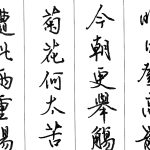 昨日登高罷
今朝更舉觴
菊花何太苦
遭此兩重陽